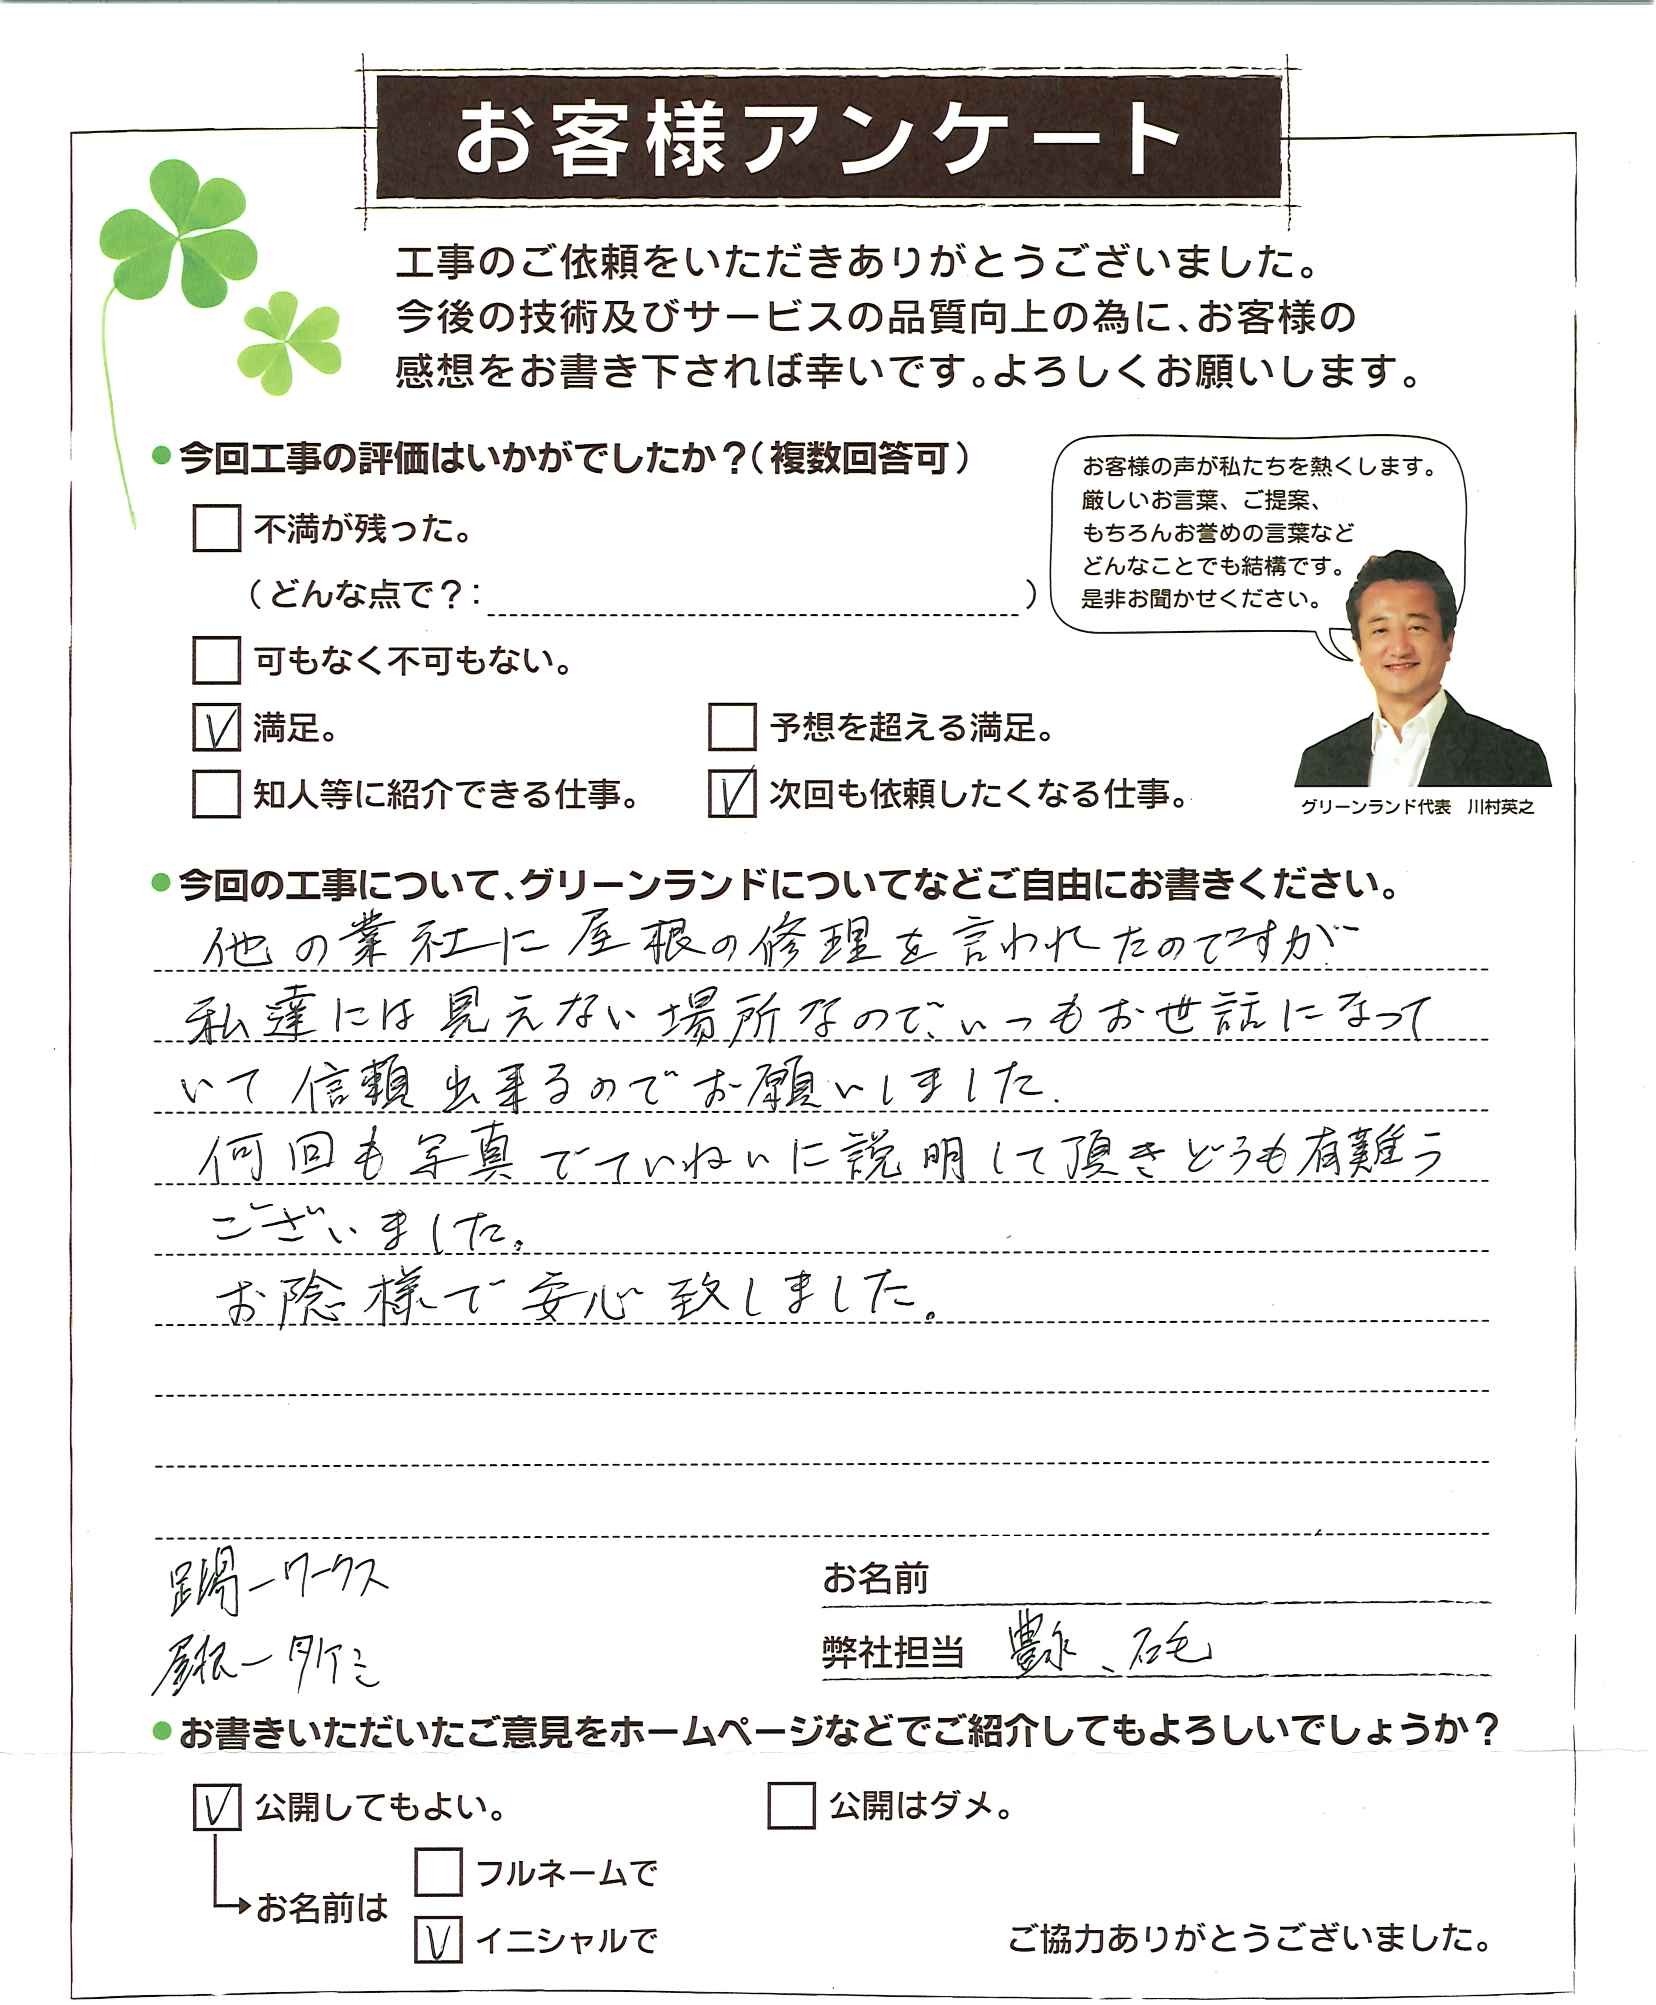 お客様アンケート
工事のご依頼をいただきありがとうございました。
今後の技術及びサービスの品質向上の為に、お客様の
感想をお書き下されば幸いです。よろしくお願いします。
●今回工事の評価はいかがでしたか？（複数回答可）
お客様の声が私たちを熱くします。
厳しいお言葉、ご提案、
もちろんお誉めの言葉など
どんなことでも結構です。
是非お聞かせください。
グリーンランド代表　川村英之
□ 不満が残った。
（どんな点で？：　　　　）
□ 可もなく不可もない。
☑ 満足。　□ 予想を超える満足。
□ 知人等に紹介できる仕事。　☑ 次回も依頼したくなる仕事。
●今回の工事について、グリーンランドについてなどご自由にお書きください。
他の業社に屋根の修理を言われたのですが
私達には見えない場所なので、いつもお世話になって
いて信頼出来るのでお願いしました.
何回も写真でていねいに説明して頂きどうも有難う
ございました。
お陰様で安心致しました。
足場ーワークス
屋根ータケミ
お名前
弊社担当　豊永、石毛
●お書きいただいたご意見をホームページなどでご紹介してもよろしいでしょうか？
☑ 公開してもよい。　□ 公開はダメ。
お名前は
□ フルネームで
☑ イニシャルで
ご協力ありがとうございました。